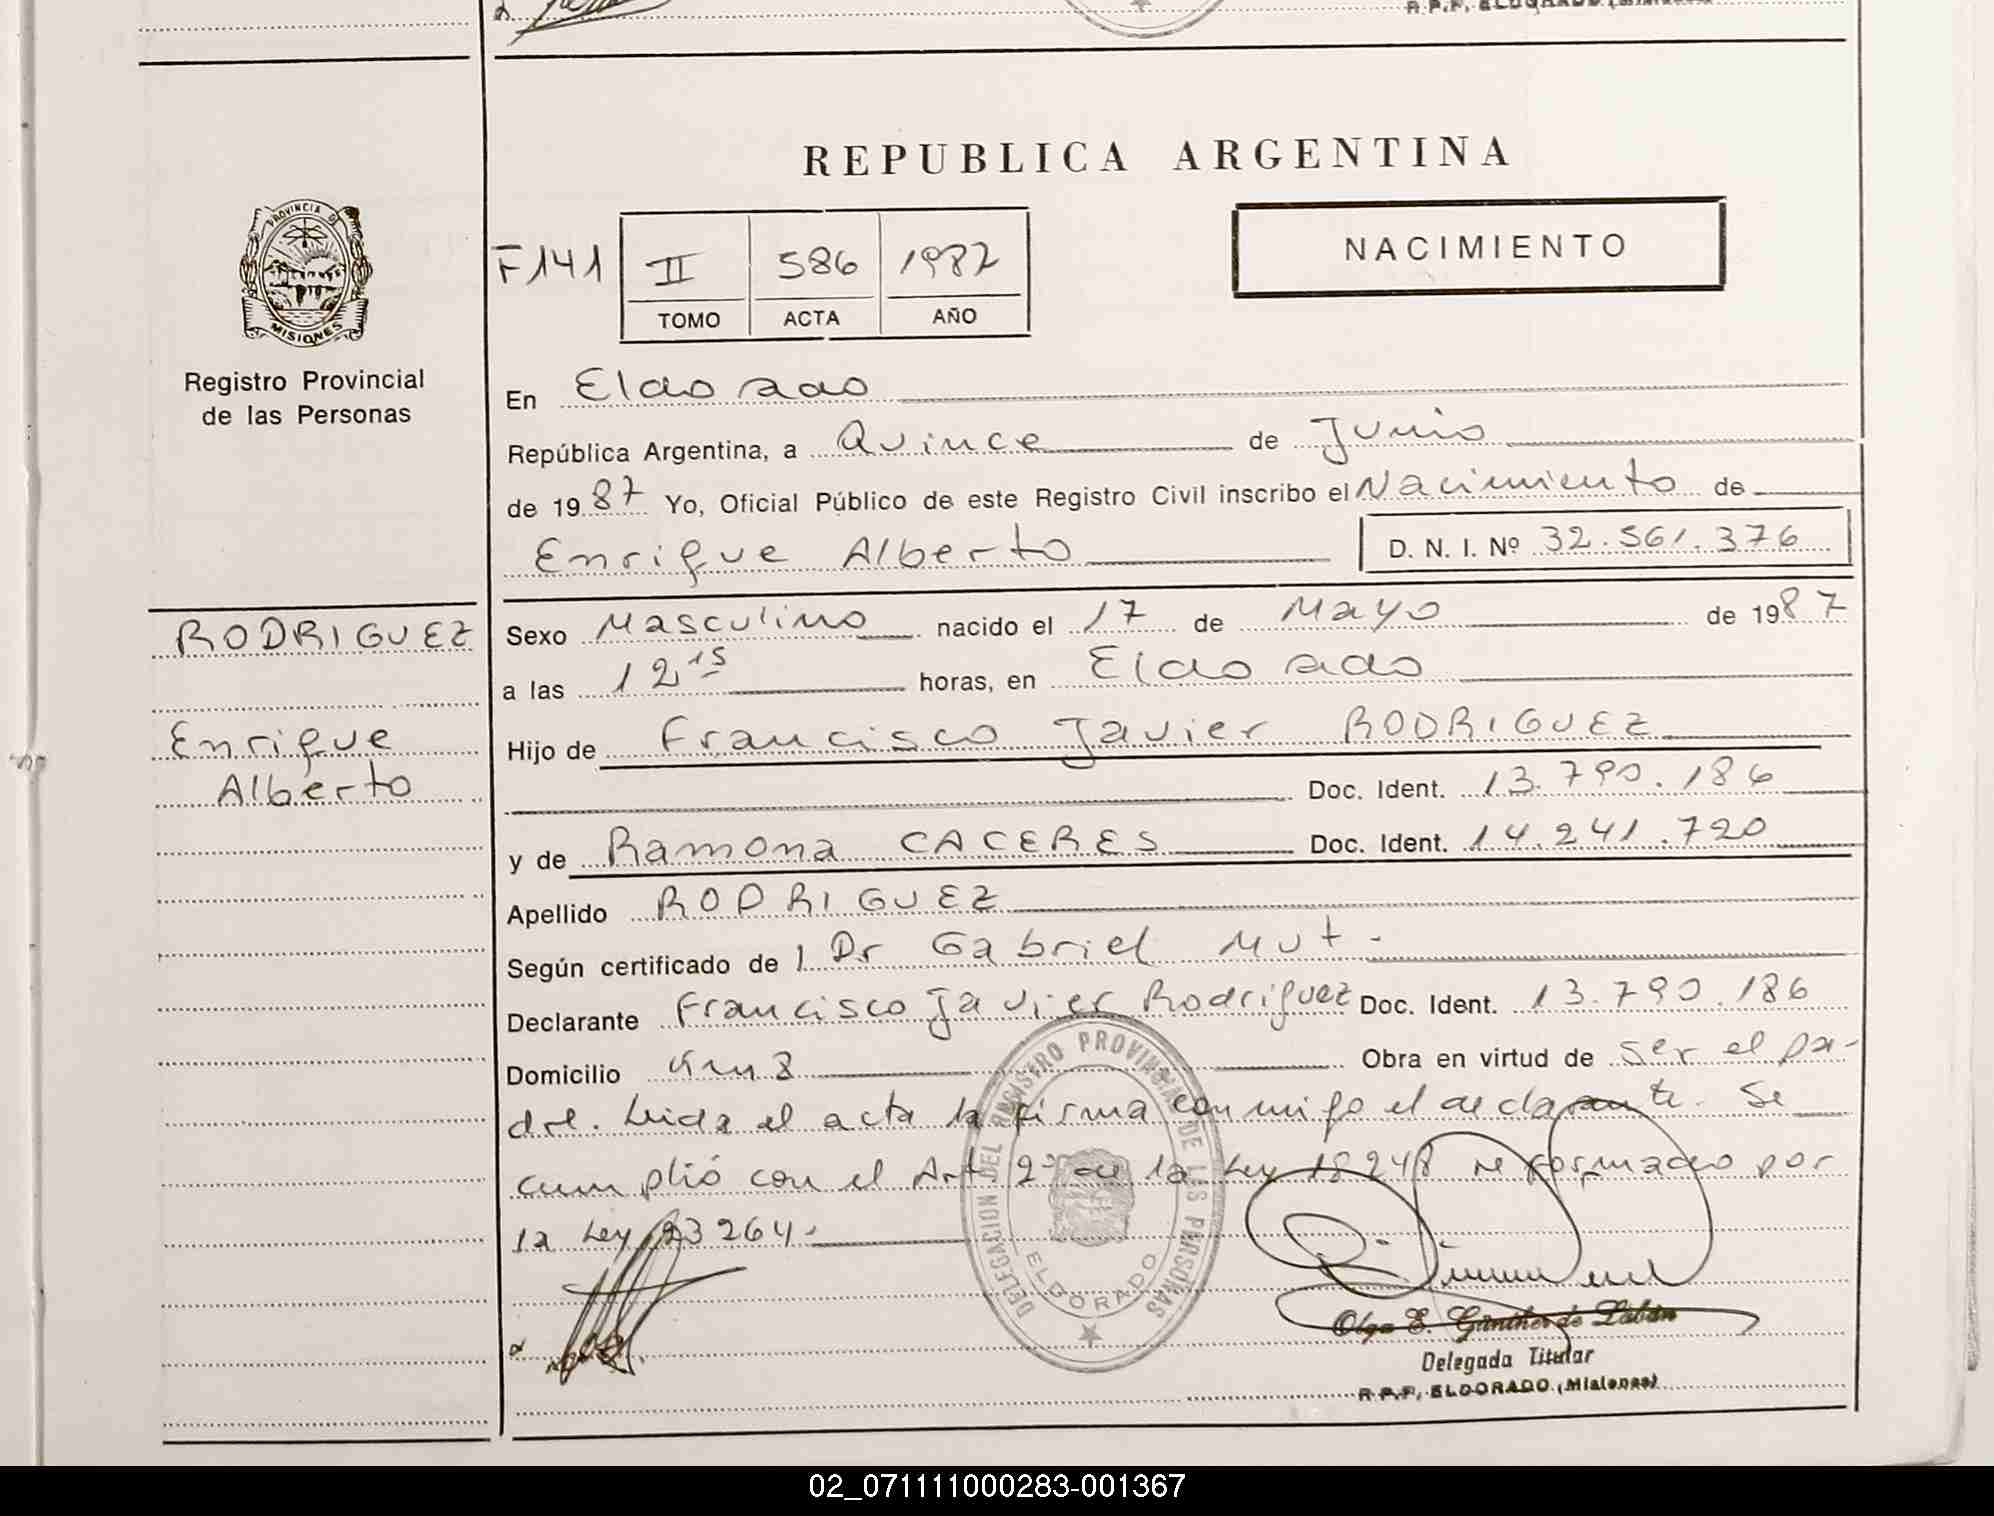 R.P.P, ELDORADO (Misiones)
REPUBLICA ARGENTINA
PROVINCIA D
MISIONES
Registro Provincial
de las Personas
F141 II 586 1987
TOMO ACTA AÑO
NACIMIENTO
En Eldorado
República Argentina, a Quince de Junio
de 1987 Yo, Oficial Público de este Registro Civil inscribo el Nacimiento de
Enrique Alberto D. N. I. Nº 32.561.376
RODRIGUEZ
Enrique
Alberto
Sexo Masculino nacido el 17 de Mayo de 1987
a las 12 15 horas, en Eldorado
Hijo de Francisco Javier RODRIGUEZ
Doc. Ident. 13.790.186
y de Ramona CACERES Doc. Ident. 14.241.720
Apellido RODRIGUEZ
Según certificado de Dr Gabriel Mut.-
Declarante Francisco Javier Rodriguez Doc. Ident. 13.790.186
Domicilio Km 8 Obra en virtud de ser el pa-
dre. Leida el acta la firma conmigo el declarante. Se
cumplió con el Art 2º de la Ley 18248 reformado por
la Ley 23264.
DELEGACION DEL REGISTRO PROVINCIAL DE LAS PERSONAS
ELDORADO
Olga E. Günther de Labán
Delegada Titular
R.P.P, ELDORADO (Misiones)
02_071111000283-001367